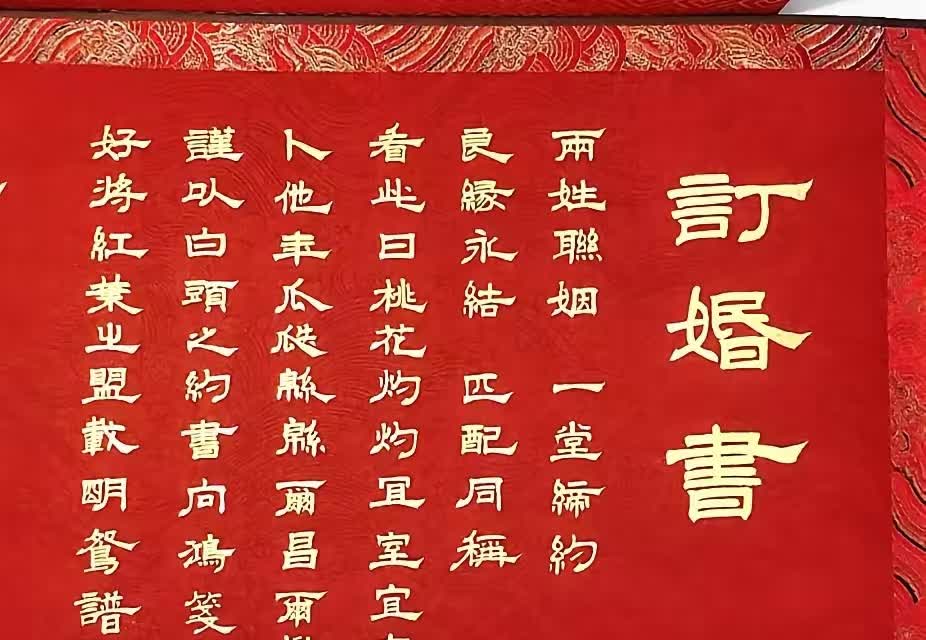 訂婚書
兩姓聯姻 一堂締約
良緣永結 匹配同稱
看此日桃花灼灼宜室宜
卜他年瓜瓞緜緜爾昌爾
謹以白頭之約書向鴻箋
好將紅葉之盟載明鴛譜